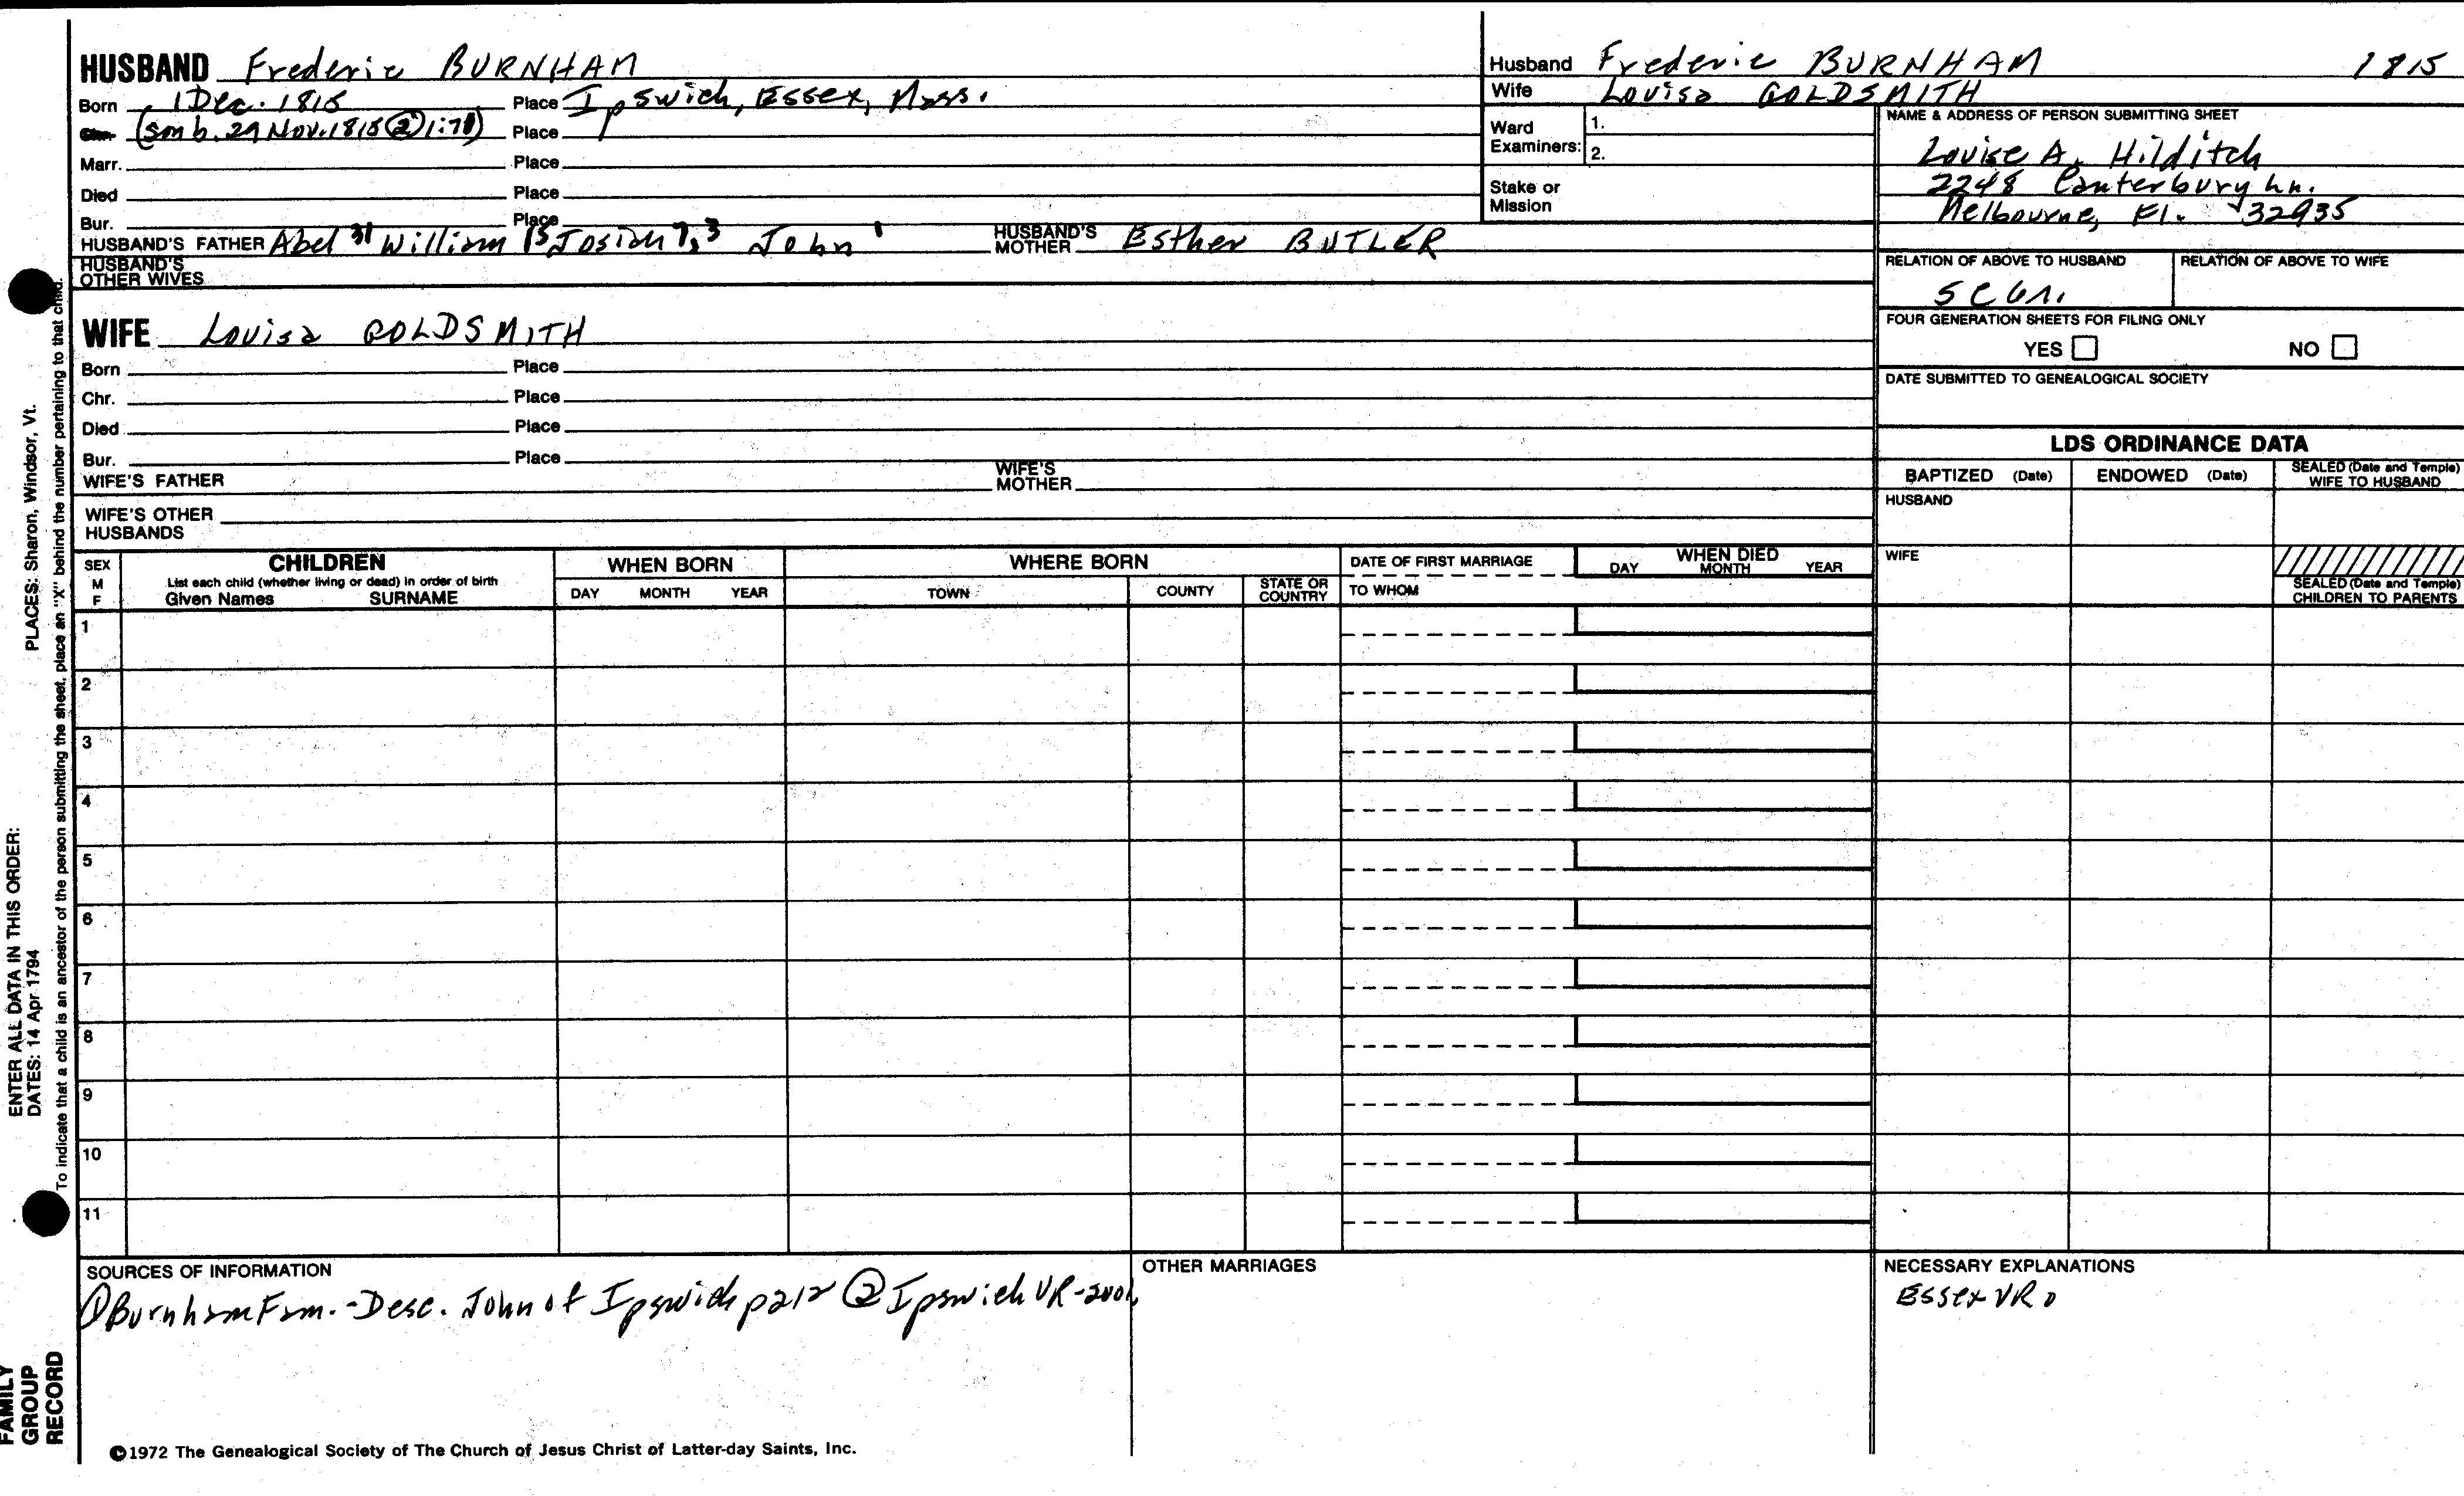 HUSBAND Frederic BURNHAM
Born 1 Dec. 1815 Place Ipswich, Essex, Mass.
Chr. (sm b. 29 Nov. 1815 ② 1:71) Place
Marr. Place
Died Place
Bur. Place
HUSBAND'S FATHER Abel 31 William 15 Josiah 7,3 John 1 HUSBAND'S MOTHER Esther BUTLER
HUSBAND'S OTHER WIVES
WIFE Louisa GOLDSMITH
Born Place
Chr. Place
Died Place
Bur. Place
WIFE'S FATHER WIFE'S MOTHER
WIFE'S OTHER HUSBANDS
Husband Frederic BURNHAM 1815
Wife Louisa GOLDSMITH
Ward Examiners: 1.
2.
Stake or Mission
NAME & ADDRESS OF PERSON SUBMITTING SHEET
Louise A. Hilditch
2248 Canterbury Ln.
Melbourne, Fl. 32935
RELATION OF ABOVE TO HUSBAND RELATION OF ABOVE TO WIFE
FOUR GENERATION SHEETS FOR FILING ONLY
YES NO
DATE SUBMITTED TO GENEALOGICAL SOCIETY
LDS ORDINANCE DATA
BAPTIZED (Date) ENDOWED (Date) SEALED (Date and Temple) WIFE TO HUSBAND
HUSBAND
WIFE
SEALED (Date and Temple) CHILDREN TO PARENTS
SEX M F
CHILDREN
List each child (whether living or dead) in order of birth
Given Names SURNAME
WHEN BORN
DAY MONTH YEAR
WHERE BORN
TOWN COUNTY STATE OR COUNTRY
DATE OF FIRST MARRIAGE
TO WHOM
WHEN DIED
DAY MONTH YEAR
1
2
3
4
5
6
7
8
9
10
11
SOURCES OF INFORMATION
① Burnham Fam. - Desc. John of Ipswich p212 ② Ipswich VR -
OTHER MARRIAGES
NECESSARY EXPLANATIONS
Essex VR 0
©1972 The Genealogical Society of The Church of Jesus Christ of Latter-day Saints, Inc.
PLACES: Sharon, Windsor, Vt.
ENTER ALL DATA IN THIS ORDER:
DATES: 14 Apr 1794
To indicate that a child is an ancestor of the person submitting the sheet, place an "X" behind the number pertaining to that child.
FAMILY
GROUP
RECORD